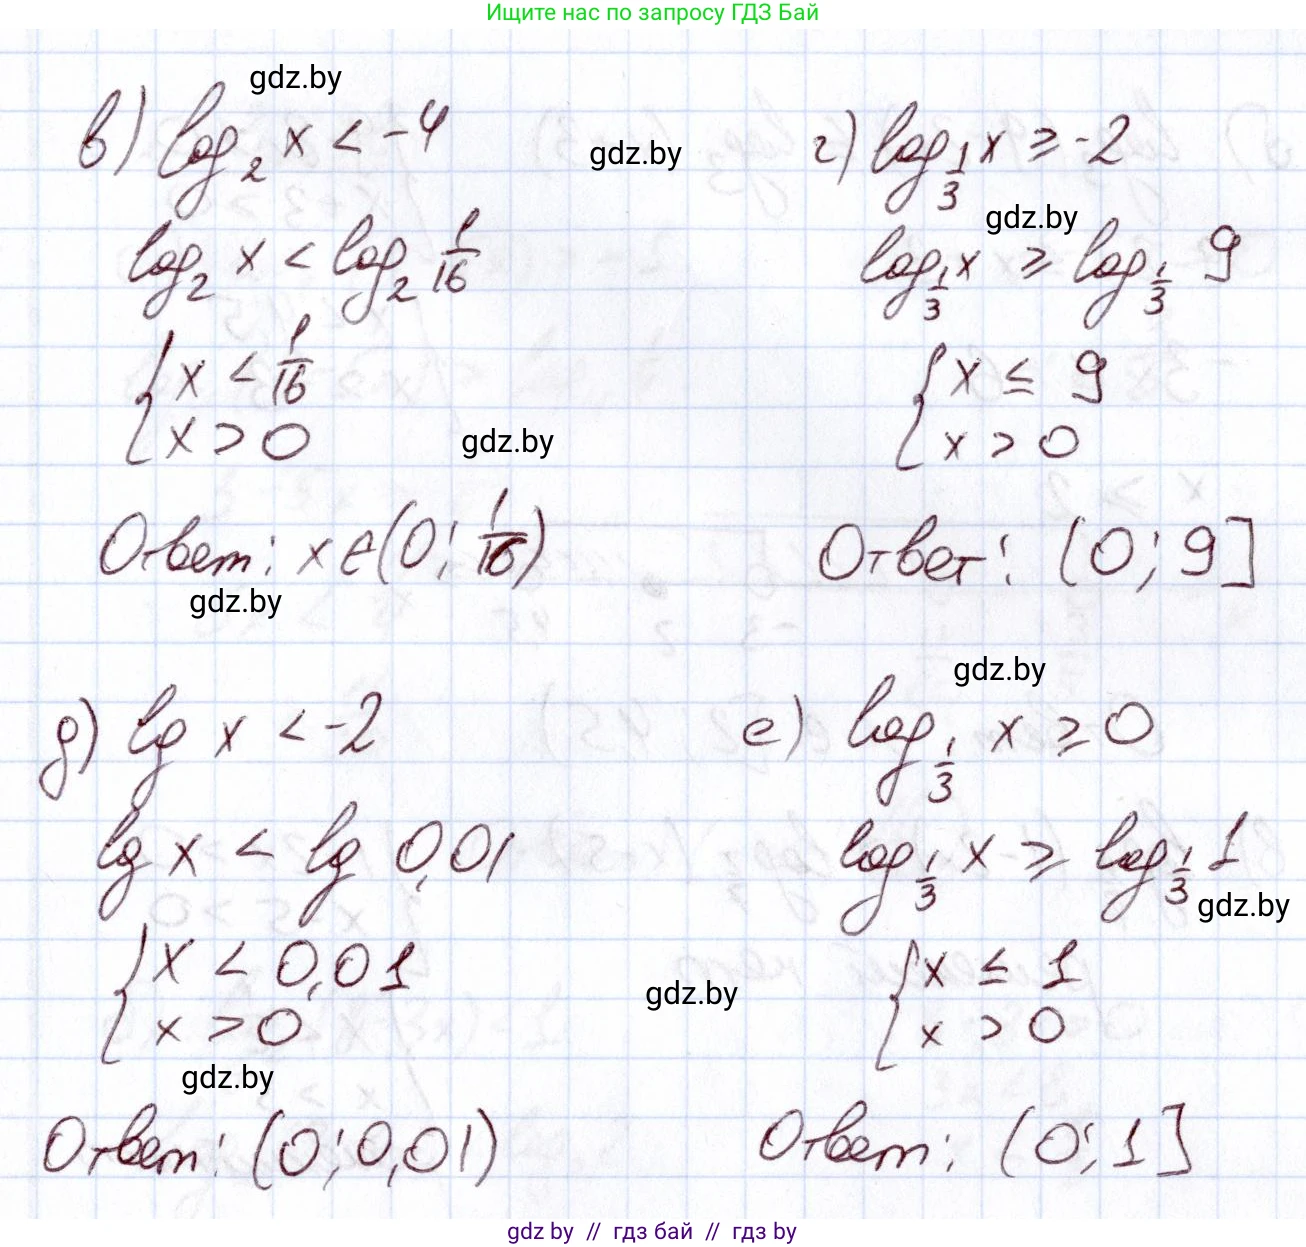 Ищите нас по запросу ГДЗ Бай
gdz.by
в) log₂ x < -4
gdz.by
log₂ x < log₂ 1/16
{ x < 1/16
x > 0
gdz.by
Ответ: x ∈ (0; 1/16)
gdz.by
г) log_{1/3} x ≥ -2
gdz.by
log_{1/3} x ≥ log_{1/3} 9
{ x ≤ 9
x > 0
Ответ: (0; 9]
д) lg x < -2
lg x < lg 0,01
{ x < 0,01
x > 0
gdz.by
gdz.by
Ответ: (0; 0,01)
gdz.by
е) log_{1/3} x ≥ 0
log_{1/3} x ≥ log_{1/3} 1
gdz.by
{ x ≤ 1
x > 0
Ответ: (0; 1]
gdz by // гдз бай // гдз by